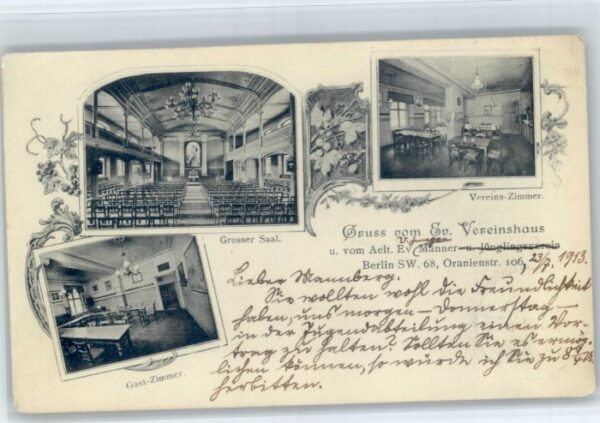 Grosser Saal.
Vereins-Zimmer.
Gast-Zimmer.
Gruss vom Ev. Vereinshaus
V. jungen
u. vom Aelt. Ev. Männer- u. Jünglingsverein
Berlin SW. 68, Oranienstr. 106, 23/7. 1913.
Lieber Mannberg.
Sie wollten wohl die Freundlichkeit
haben, uns morgen - Donnerstag -
in der Jugendabteilung einen Vor-
trag zu halten? Sollten Sie es ermög-
lichen können, so würde ich Sie zu 8
herbitten.